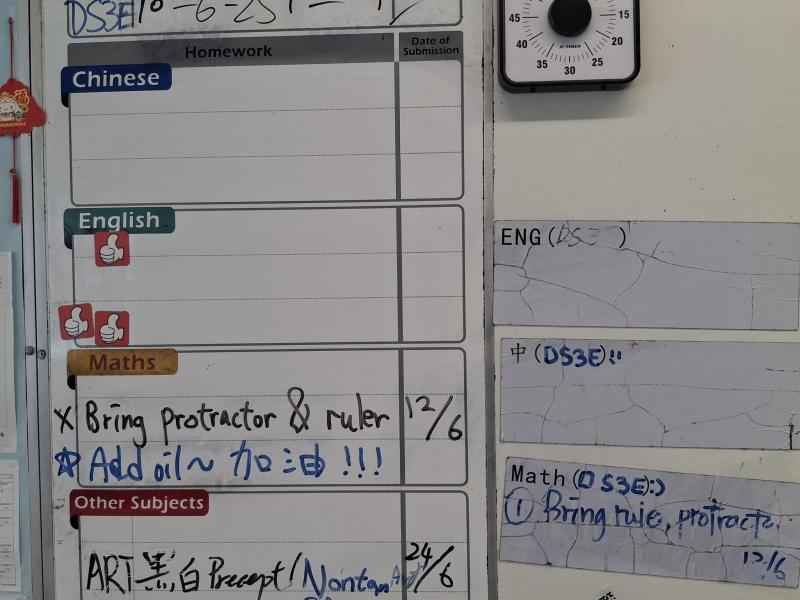 DS3E 10-6-25
Homework
Date of Submission
Chinese
English
Maths
X Bring protractor & ruler 12/6
☆ Add oil~ 加油 !!!
Other Subjects
ART 黑白 Precept / Nontan 24/6
45
40
35
30
25
20
15
ENG (DS3E)
中 (DS3E)!!
Math (DS3E):)
① Bring rule, protracto
12/6